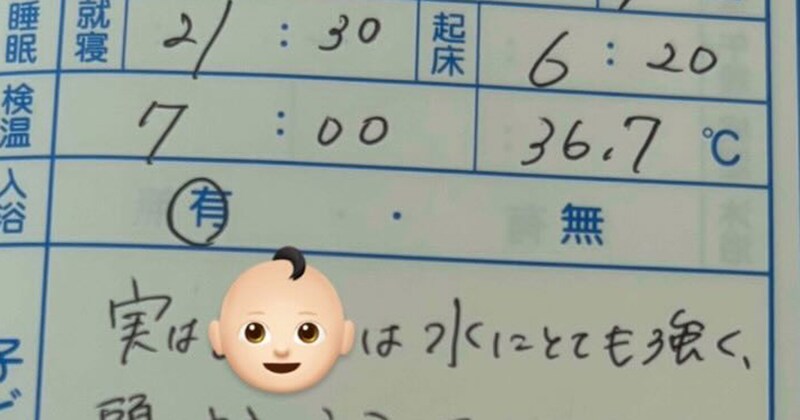 睡眠 就寝 21:30 起床 6:20
検温 7:00 36.7 ℃
入浴 有・無
実は は水にとても強く、
子ど
頭